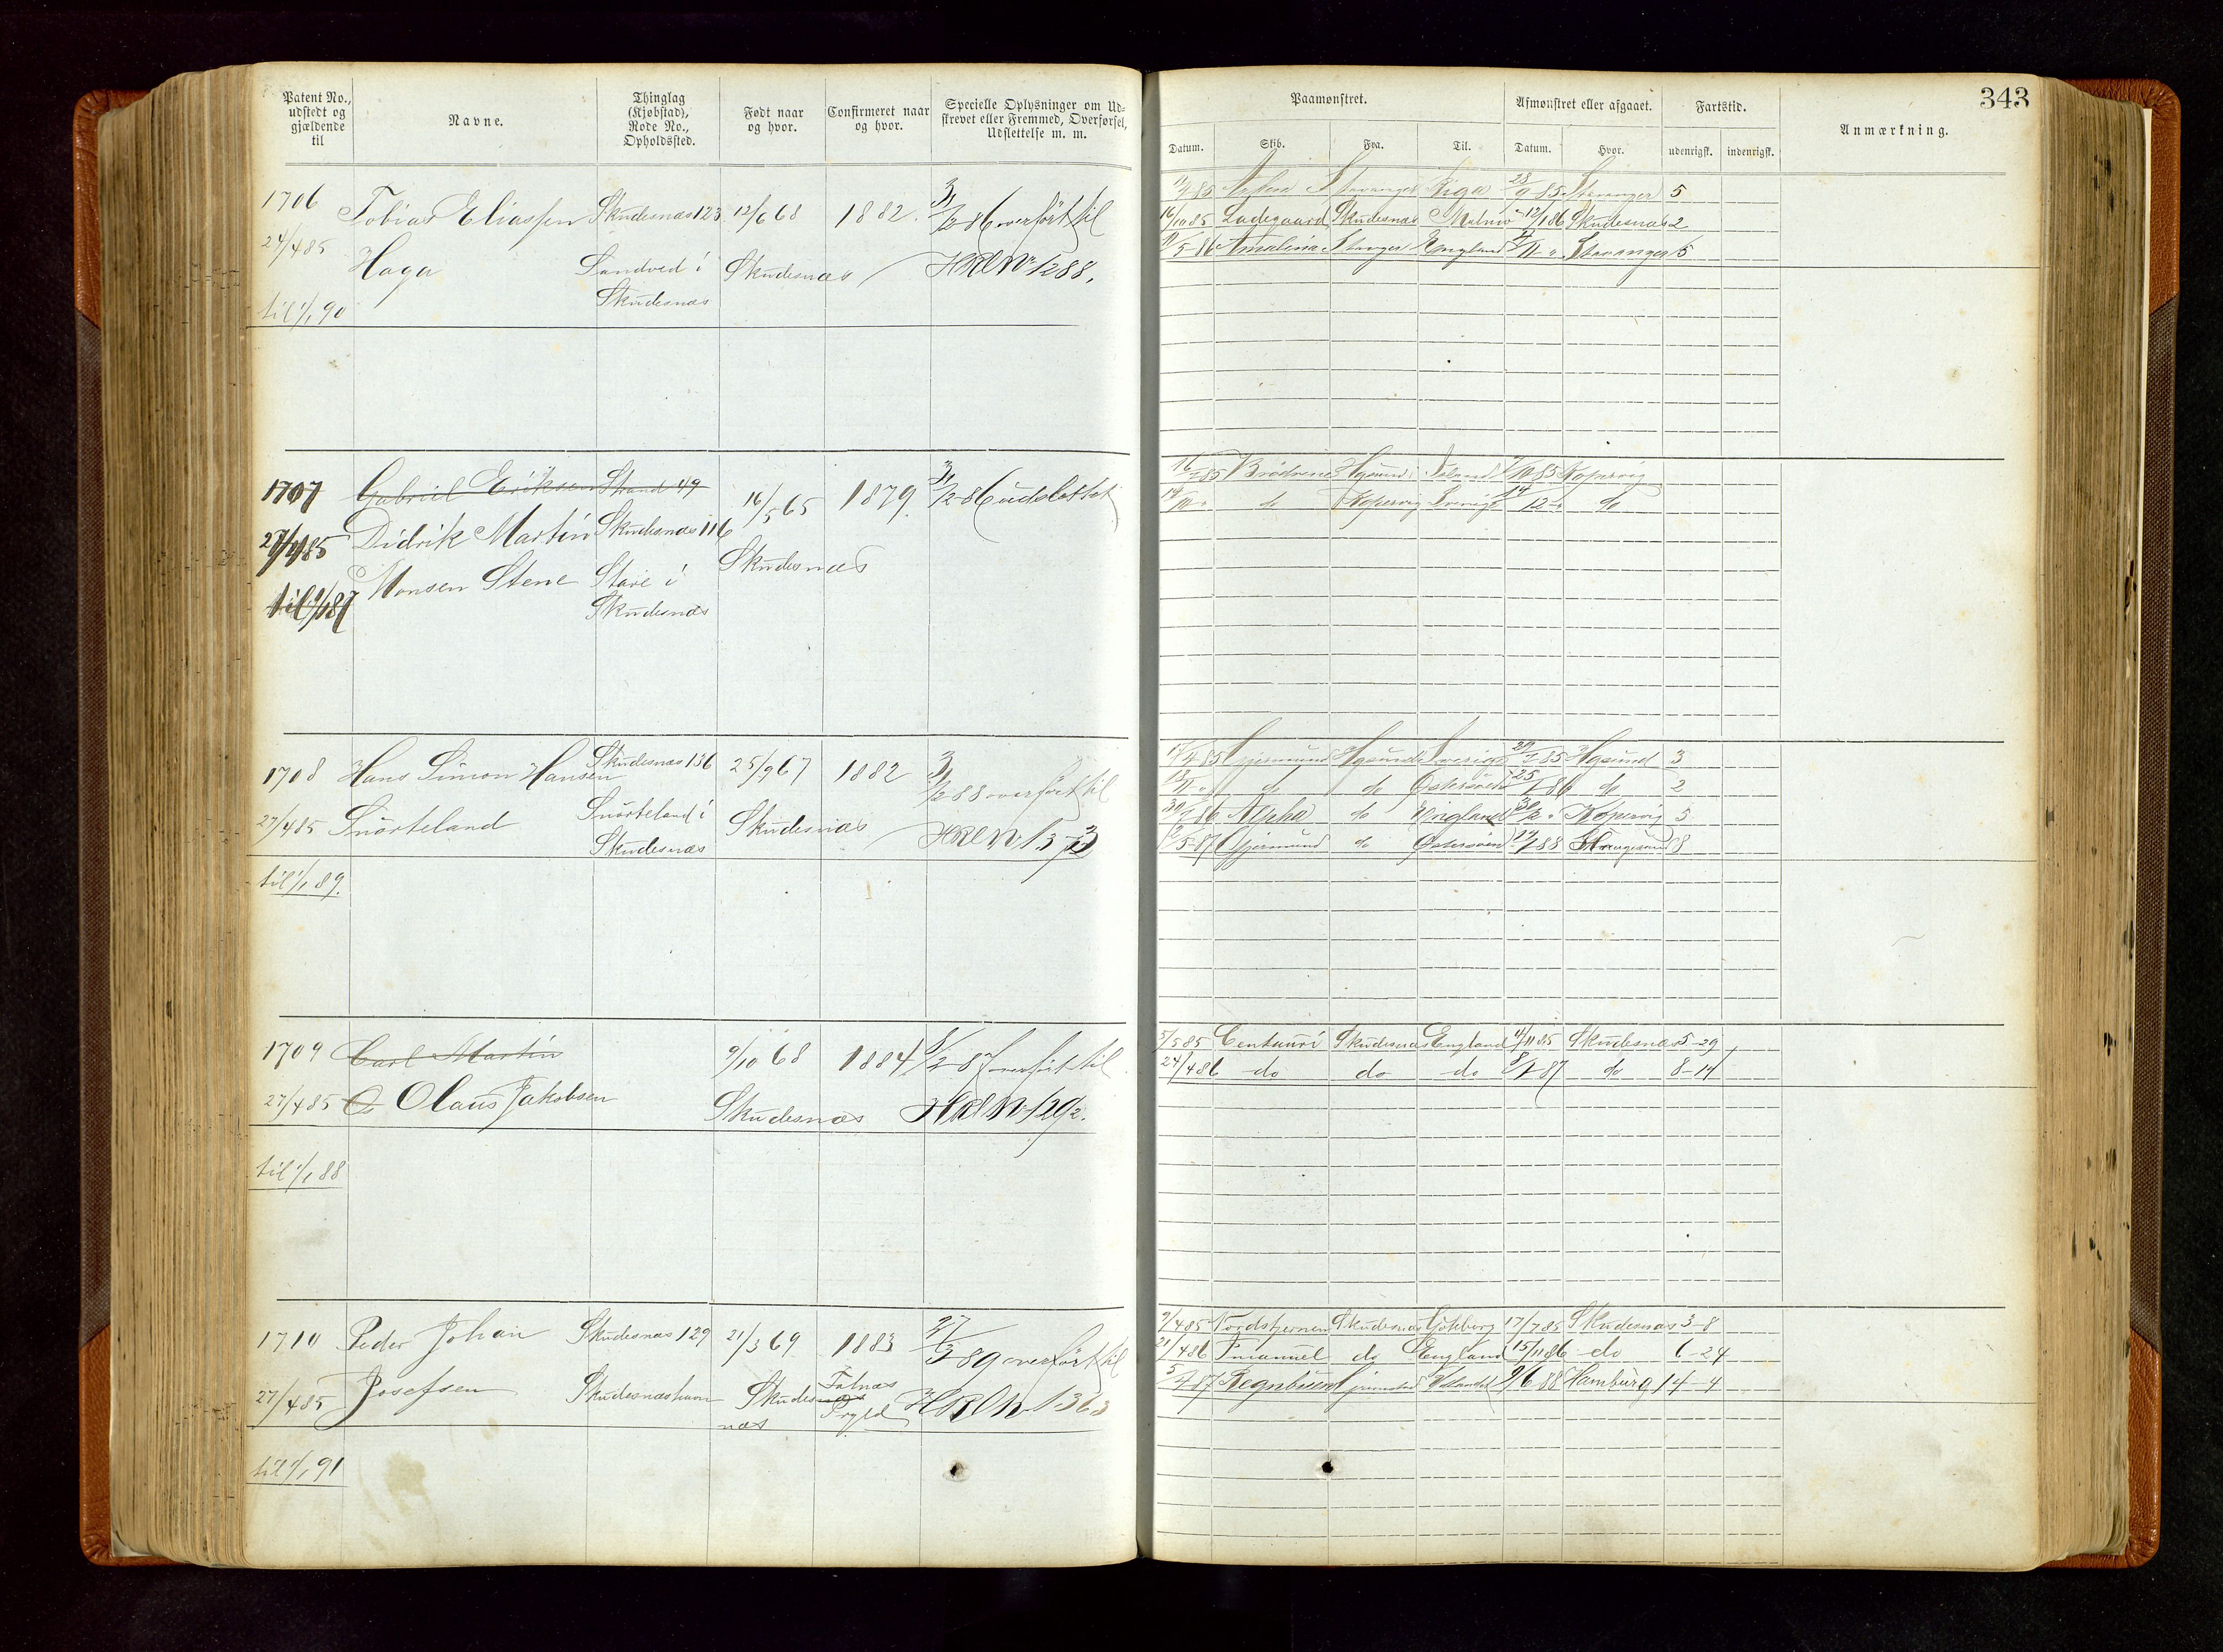 343
Patent No., udstedt og gjældende til
Navne.
Thinglag (Kjøbstad), Rode No., Opholdssted.
Født naar og hvor.
Confirmeret naar og hvor.
Specielle Oplysninger om Udskrevet eller Fremmed, Overførsel, Udslettelse m. m.
Paamønstret.
Datum. Skib. Fra. Til.
Afmønstret eller afgaaet.
Datum. Hvor.
Fartstid.
udenrigsk. indenrigsk.
Anmærkning.
1706 Tobias Eliassen Skudesnæs 123 12/6 68 1882. 31/12 86 overført til
24/4 85 Haga Sandved i Skudesnæs HRL No 1288.
til 1/1 90 Skudesnæs
Stavanger Riga 28/9 85 Stavanger 5
16/10 85 Ladegaard Skudesnæs Malmö 12/1 86 Skudesnæs 2
Amalia Stavanger England Stavanger 5
1707 Gabriel Eriksen Strand 49 16/5 65 1879. 31/12 86 udslettet
27/4 85 Didrik Martin Skudesnæs 116 Skudesnæs
Monsen Stene Stave i
til 1/1 87 Skudesnæs
Brødrene Hgsund Island Kopervig
do Kopervig Sverige 14/12 do
1708 Hans Simon Hansen Skudesnæs 136 25/9 67 1882 31/12 88 overført til
27/4 85 Snørteland Snørteland i Skudesnæs HRL No 1373
til 1/1 89. Skudesnæs
Gjermund Hgsund Sverige Hgsund 3
do do Østersøen 25/1 86 do 2
Alpha do England Kopervig 5
Gjermund do Østersøen Haugesund 8
1709 Carl Martin 9/10 68 1884 overført til
27/4 85 Olaus Jakobsen Skudesnæs HRL No 1292.
til 1/1 88
5/5 85 Centauri Skudesnæs England 4/11 85 Skudesnæs 5-29
24/4 86 do do do 8/1 87 do 8-14
1710 Peder Johan Skudesnæs 129 21/3 69 1883 27/3 89 overført til
27/4 85 Josefsen Skudesnæshavn Skudesnæs Falnæs HRL No 1363
til 1/1 91
9/4 85 Nordstjernen Skudesnæs Gøteborg 17/7 85 Skudesnæs 3-8
21/4 86 Immanuel do England 15/11 86 do 6-24
5/4 87 Regnbuen 9/6 88 Hamburg 14-4